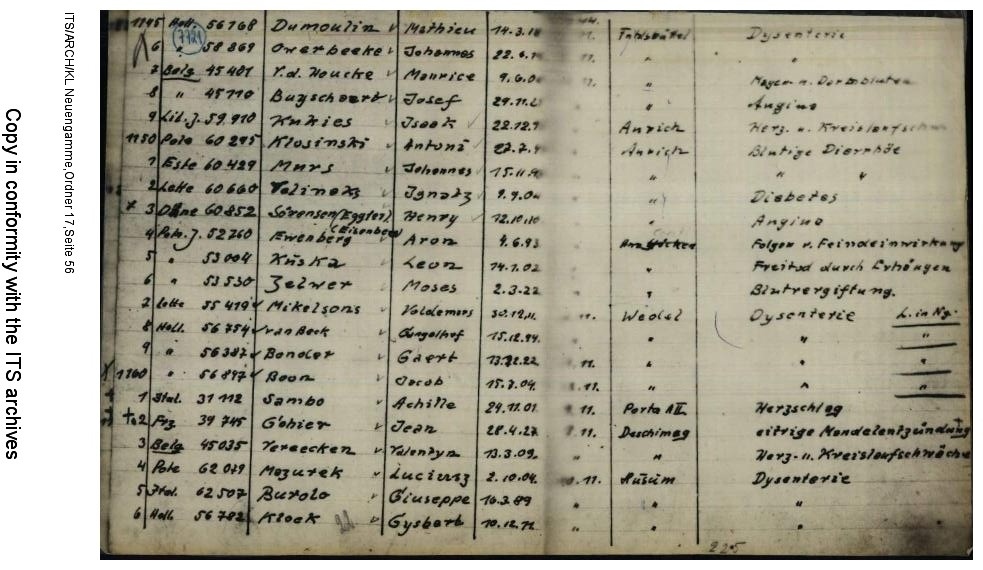 Copy in conformity with the ITS archives
ITS/ARCH/KL Neuengamme, Ordner 17, Seite 56
1145 Holl. 56768 Dumoulin Mathieu 14.3. 11. Fuhlsbüttel Dysenterie
7721
6 " 58869 Owerbeeke Johannes 22.6. 11. " "
7 Belg 45401 V.d. Houcke Maurice 9.6.0 11. " Magen- u. Darmbluten
8 " 45710 Buyschaert Josef 29.11.2 " Angina
9 Lit.J. 59910 Kukies Isaak 22.12. Aurich Herz. u. Kreislaufschw
1150 Pole 60295 Klosinski Antoni 27.7. Aurich Blutige Diarrhöe
1 Este 60429 Murs Johannes 15.11. " " "
2 Lette 60660 Valinoks Ignatz 9.9.04 " Diabetes
3 Däne 60852 Sörensen (Eggler) Henry 12.10.10 " Angina
4 Poln.J. 52760 Ewenberg (Eisenberg) Aron 9.6.93 Folgen v. Feindeinwirkung
5 " 53004 Kuska Leon 14.1.02 " Freitod durch Erhängen
6 " 53530 Zelwer Moses 2.3.22 " Blutvergiftung.
7 Lette 55419 Mikelsons Voldemars 30.12.11. 11. Wedel Dysenterie L. in Ng.
8 Holl. 56754 van Beck 15.12.94. " " "
9 " 56387 Bonder Geert " " "
1160 " 56847 Boon Jacob 15.7.04. 11. " " "
1 Ital. 31112 Sambo Achille 24.11.01 11. Porta A II Herzschlag
2 Frz 39745 Gohier Jean 28.4.27 11. Deschimag eitrige Mandelentzündung
3 Belg 45035 Vereecken Valentyn 13.3.09. " " Herz- u. Kreislaufschwäche
4 Pole 62079 Mazurek Luciusz 2.10.04. 11. Husum Dysenterie
5 Ital. 62507 Burolo Giuseppe 16.3.89 " " "
6 Holl. 56782 Kloek Gysbert 10.12. " " "
225